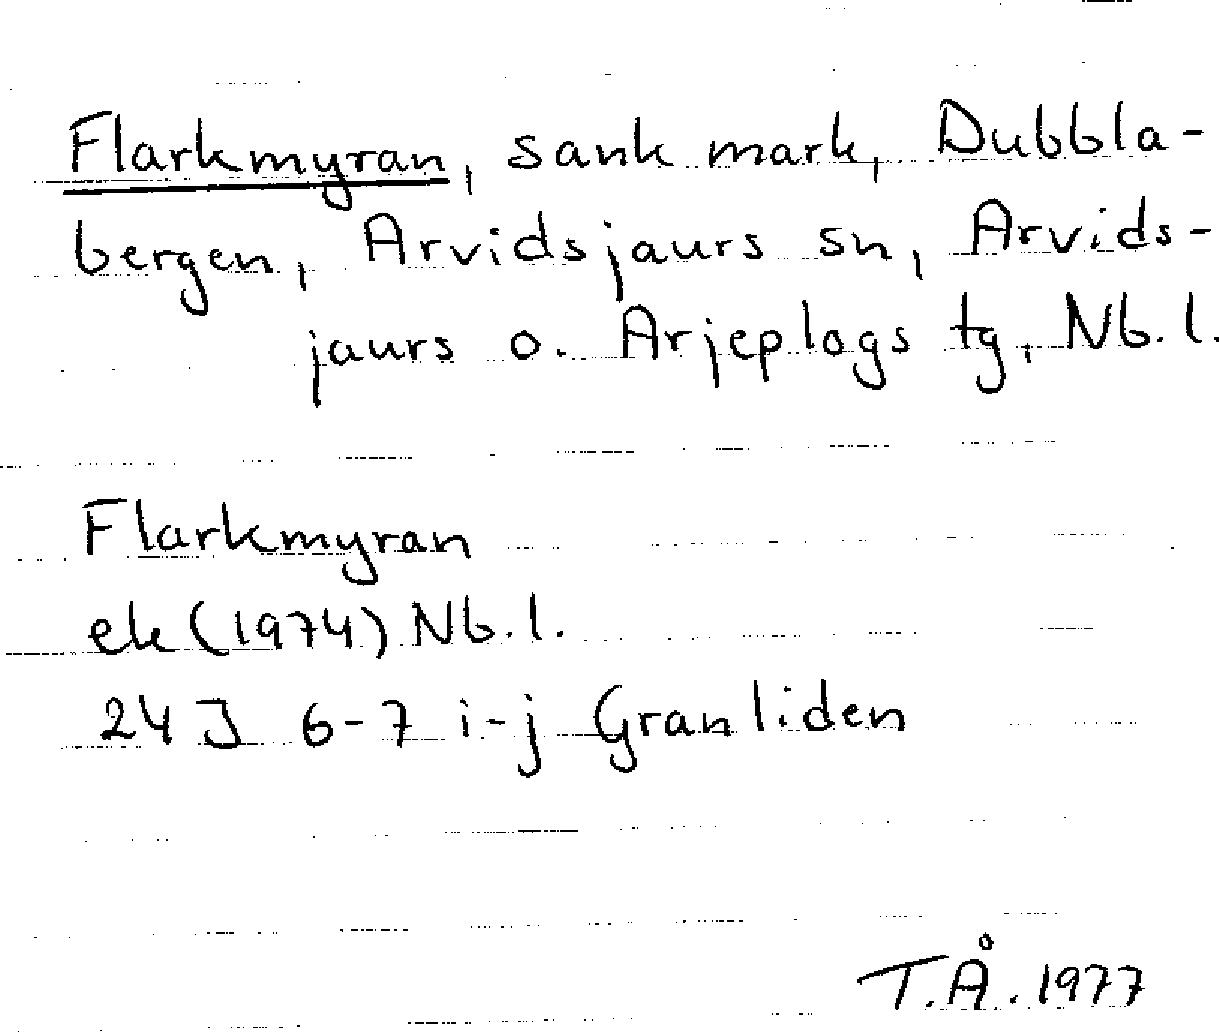 Flarkmyran, sank mark, Dubbla-
bergen, Arvidsjaurs sn, Arvids-
jaurs o. Arjeplogs tg, Nb.l.
Flarkmyran
ek (1974) Nb.l.
24 J 6-7 i-j Granliden
T.Å. 1977